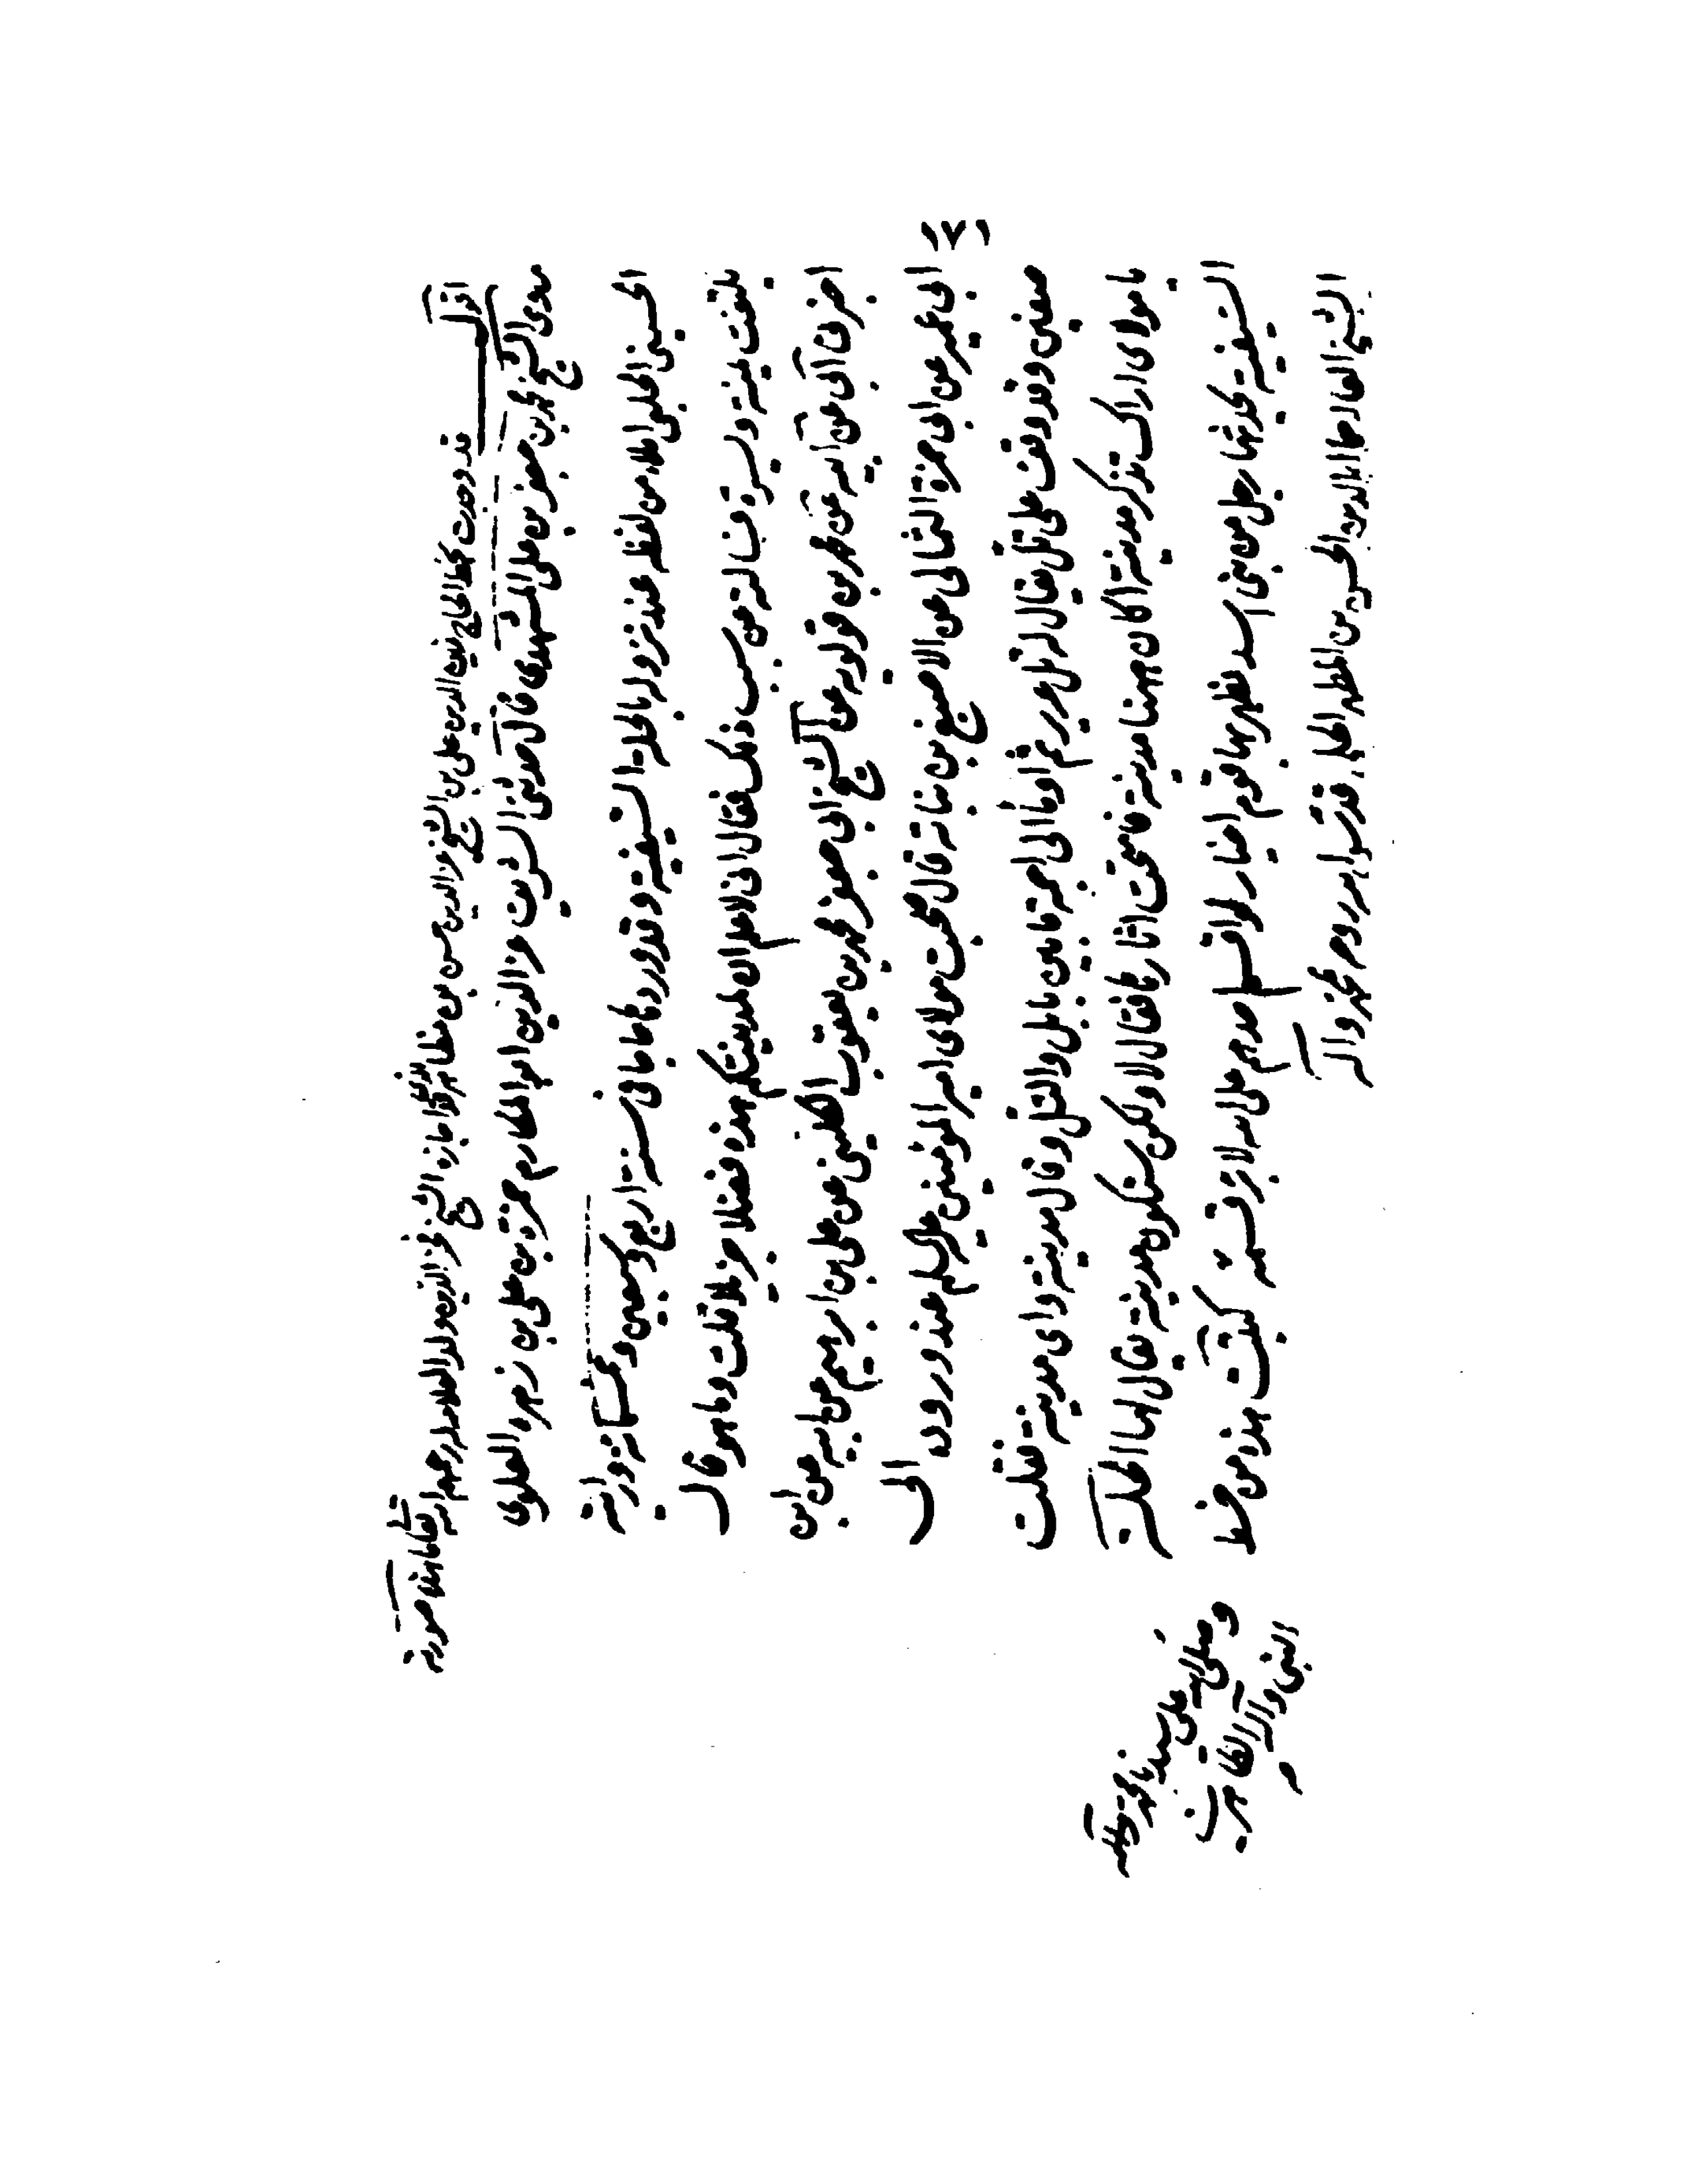 اقول قد وجدت بخط الحاج زين الدين علي بن الشيخ عز الدين حسن بن مظاهر الذي اجازه الشيخ فخر الدين ولد العلامة رحمهم الله تعالى ما هذا صورته
روى الشيخ محمد بن جعفر بن علي المشهدي قال حدثني الشريف عز الدين ابو المكارم حمزة بن علي بن زهره العلوي
الحسيني الحلبي املاء من لفظه عند نزوله بالحلة السيفية وقد وردها حاجا في سنة اربع وسبعين وخمسمائة ورايته
يلتفت يمنة ويسرة فسالته عن سبب ذلك فقال اني لاعلم ان لمدينتكم هذه فضلا جزيلا قلت وما هو قال
اخبرني ابي عن ابيه عن محمد بن قولويه عن الشيخ ابي جعفر محمد بن يعقوب الكليني عن علي بن ابرهيم عن ابيه عن ابن
ابي عمير عن ابي حمزة الثمالي عن الاصبغ بن نباتة قال صحبت مولاي امير المؤمنين عليه السلام عند وروده الى
صفين وقد وقف على تل يقال له تل عرير ثم اومأ الى اجمة ما بين بابل والتل وقال مدينة واي مدينة فقلت
يا مولاي اراك تذكر مدينة اكان ههنا مدينة فامتحت اثارها فقال لا ولكن ستكون مدينة يقال لها الحلة
السيفية يحدثها رجل من بني اسد يظهر بها قوم اخيار لو اقسم احدهم على الله لابر قسمه كتبت هذا من خط
الشيخ العالم جمال الدين الحسن بن المطهر الحلي قدس الله روحه بمحمد وآله
وصلى الله على سيدنا محمد وآله
النبي وآله الطاهرين
١٣١